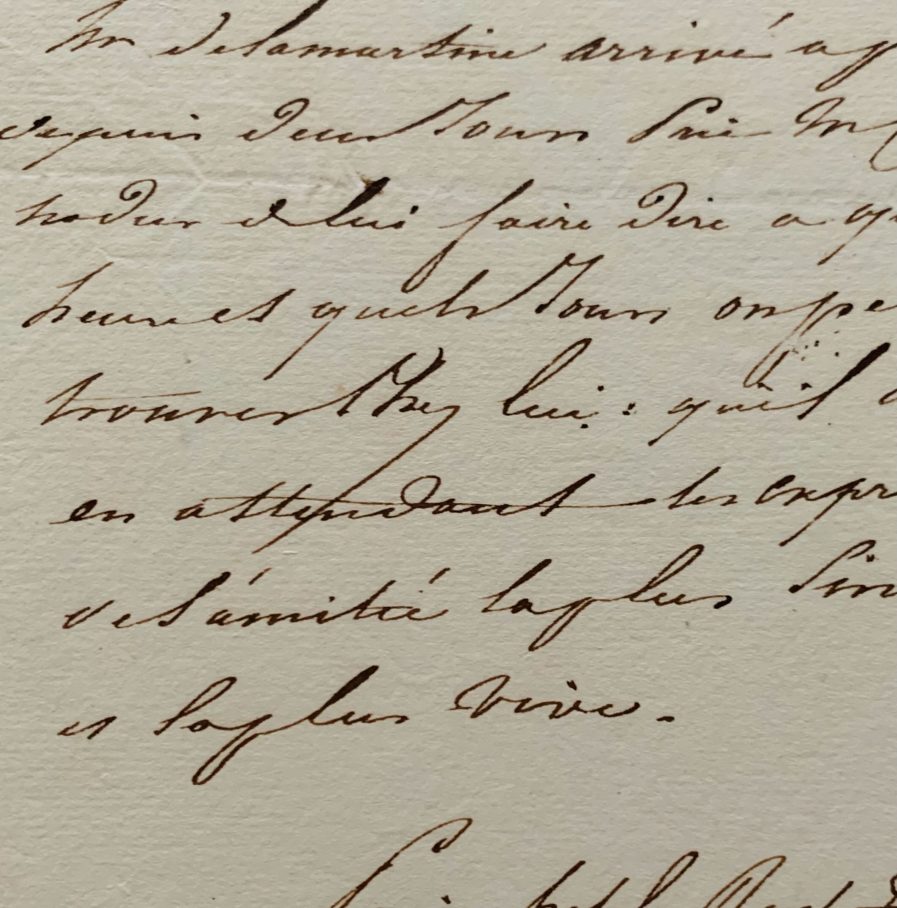 Mr delamartine arrivé a
depuis deux Jours Prie Mr
de lui faire dire a
heure et quels Jours on pe
trouver Chez lui : qu'il
en attendant les expr
del'amitié laplus Sin
et laplus Vive.